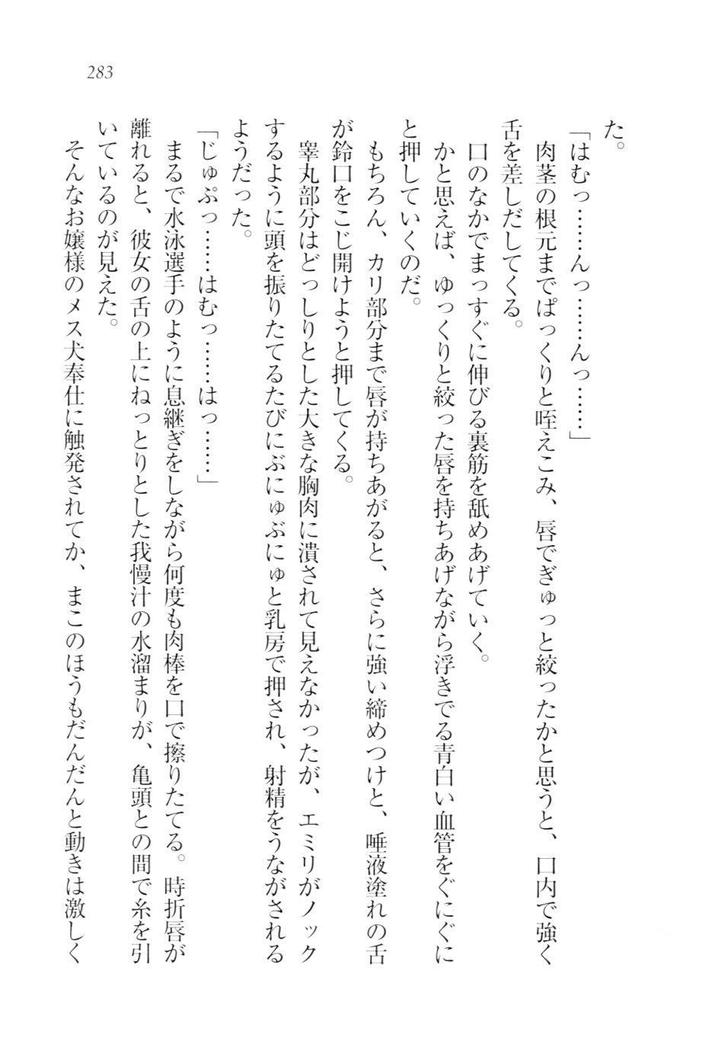 283
た。
「はむっ……んっ……んっ……」
　肉茎の根元までぱっくりと咥えこみ、唇でぎゅっと絞ったかと思うと、口内で強く
舌を差しだしてくる。
　口のなかでまっすぐに伸びる裏筋を舐めあげていく。
　かと思えば、ゆっくりと絞った唇を持ちあげながら浮きでる青白い血管をぐにぐに
と押していくのだ。
　もちろん、カリ部分まで唇が持ちあがると、さらに強い締めつけと、唾液塗れの舌
が鈴口をこじ開けようと押してくる。
　睾丸部分はどっしりとした大きな胸肉に潰されて見えなかったが、エミリがノック
するように頭を振りたてるたびにぶにゅぶにゅと乳房で押され、射精をうながされる
ようだった。
「じゅぷっ……はむっ……はっ……」
　まるで水泳選手のように息継ぎをしながら何度も肉棒を口で擦りたてる。時折唇が
離れると、彼女の舌の上にねっとりとした我慢汁の水溜まりが、亀頭との間で糸を引
いているのが見えた。
　そんなお嬢様のメス犬奉仕に触発されてか、まこのほうもだんだんと動きは激しく